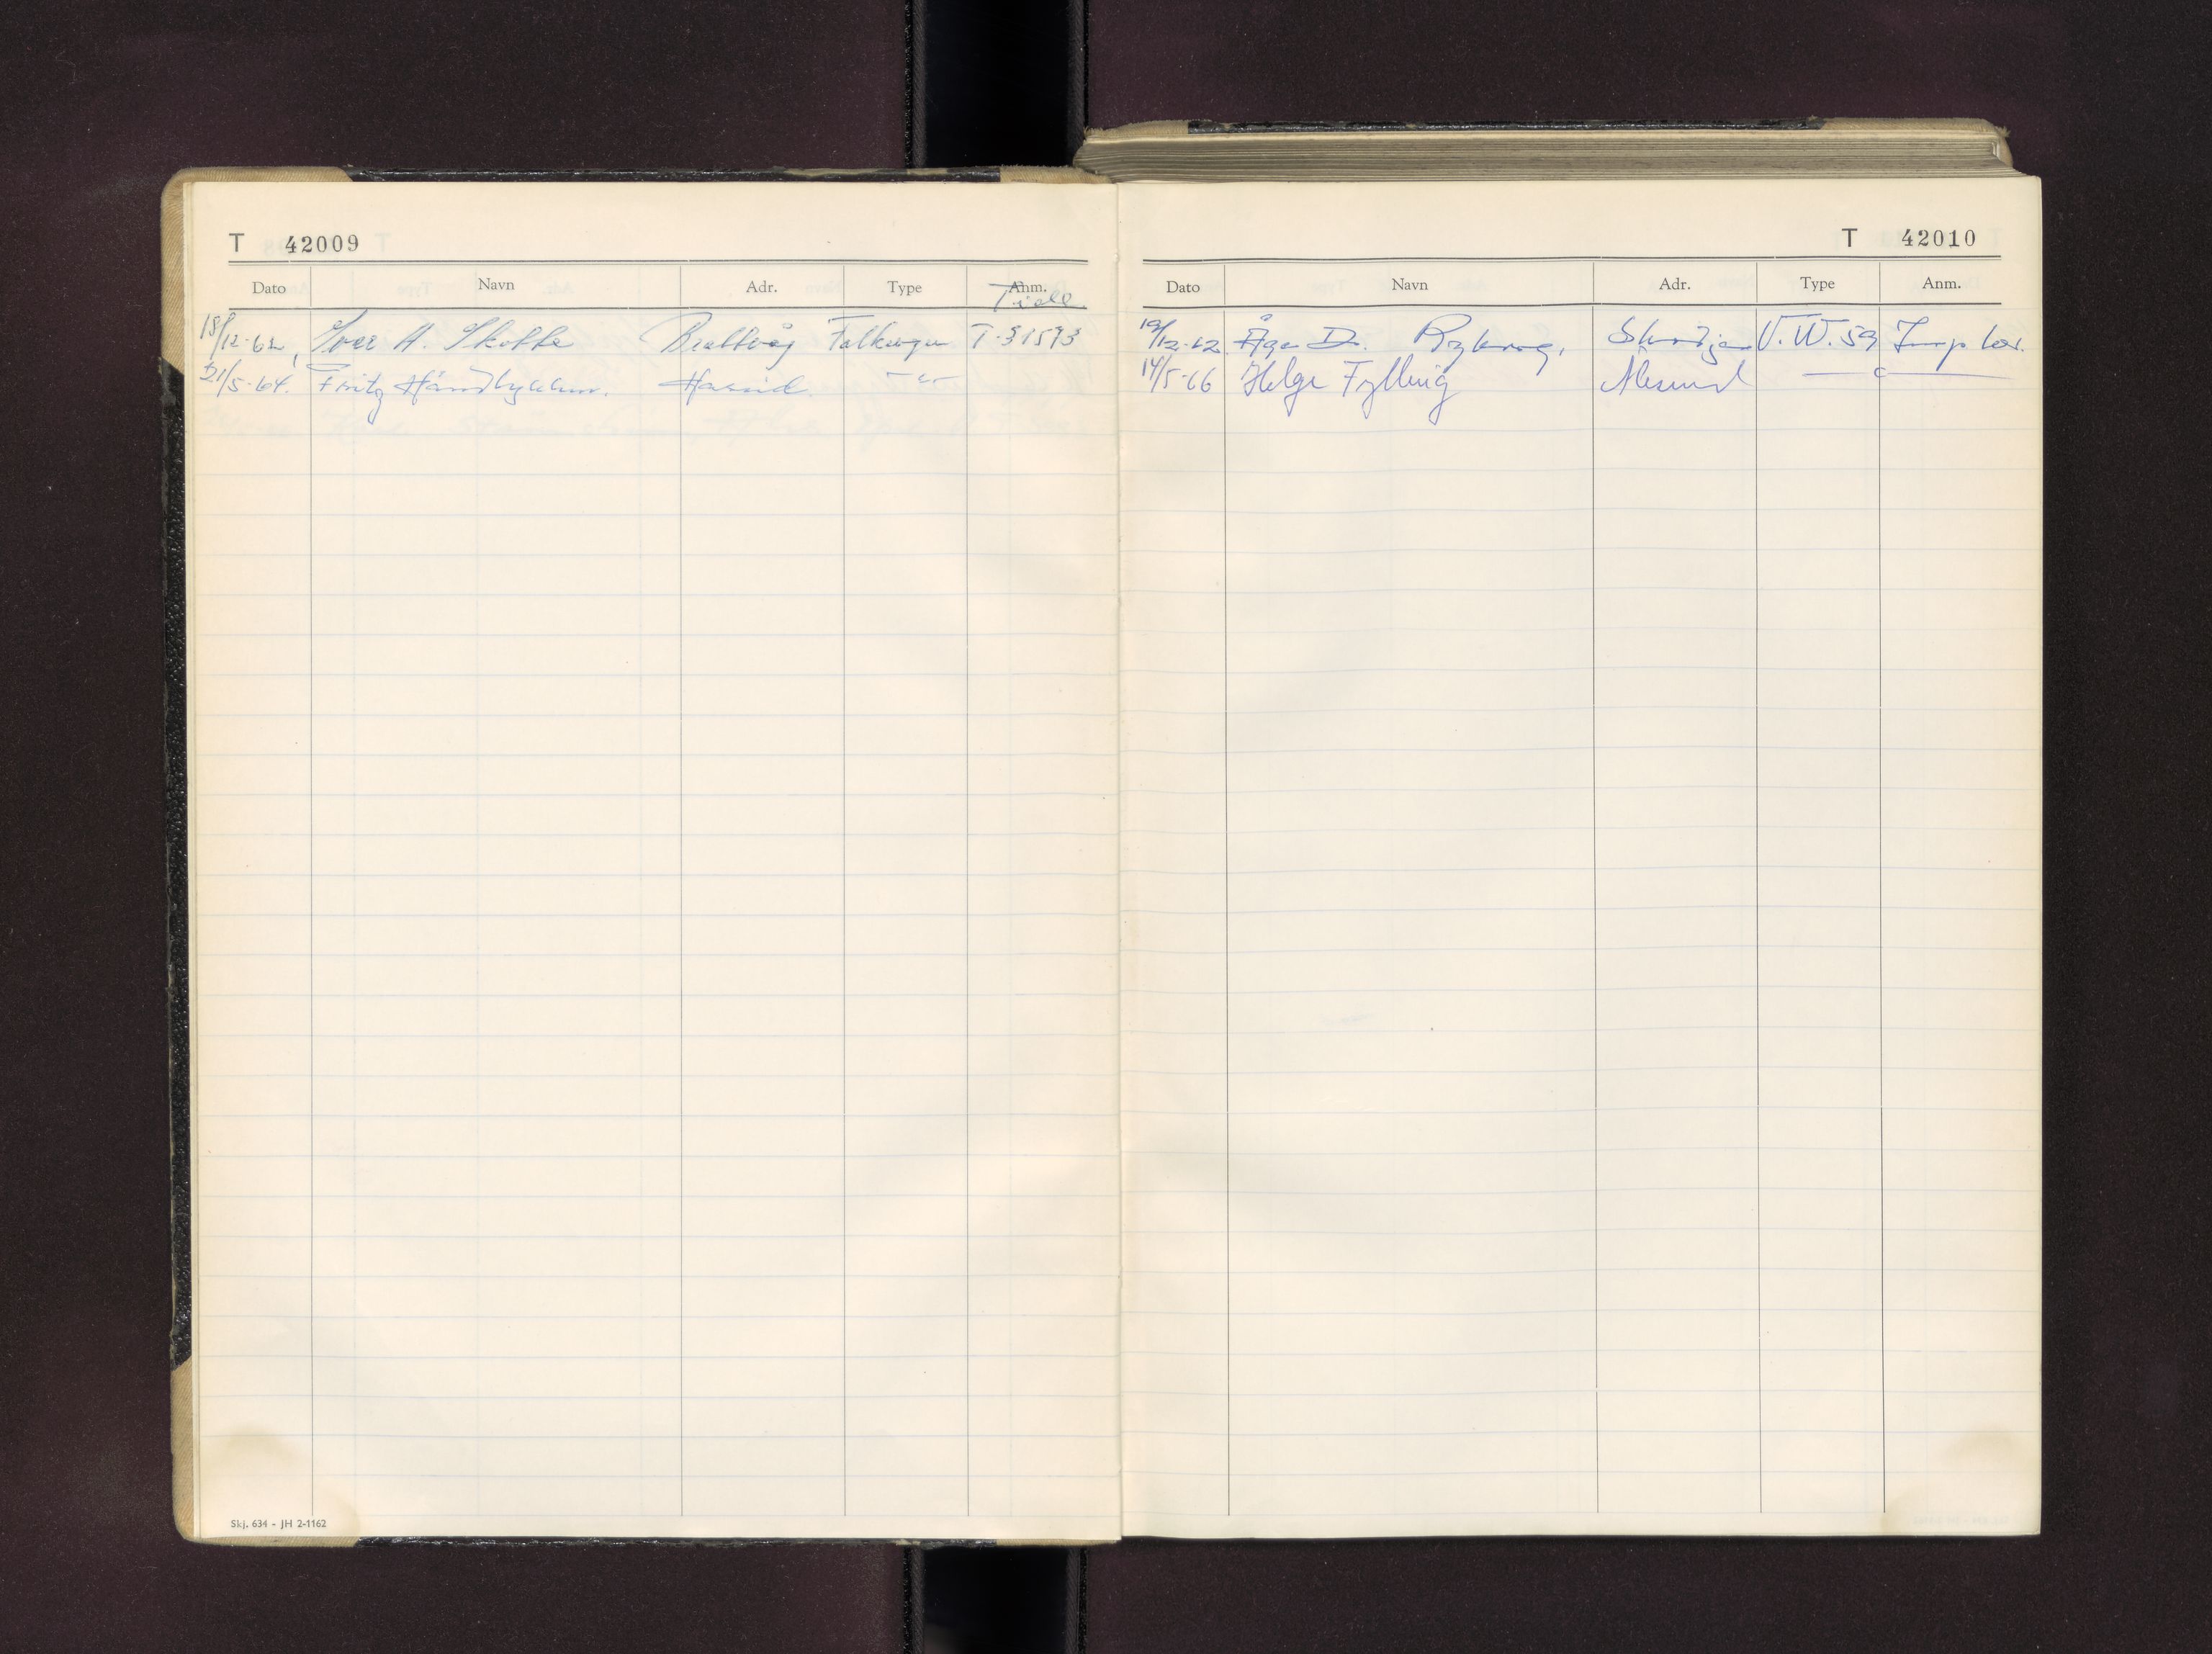 T 42009
Dato Navn Adr. Type Anm.
Tidl.
18/12-62, Ivar H. Skotte Brattvåg Folkevogn T-31593
21/5-64. Fritz Hareid — " —
Skj. 634 - JH 2-1162
T 42010
Dato Navn Adr. Type Anm.
19/12-62 Åge Skodje V.W. 59 Imp
14/5-66 Helge Fylling Ålesund — " —